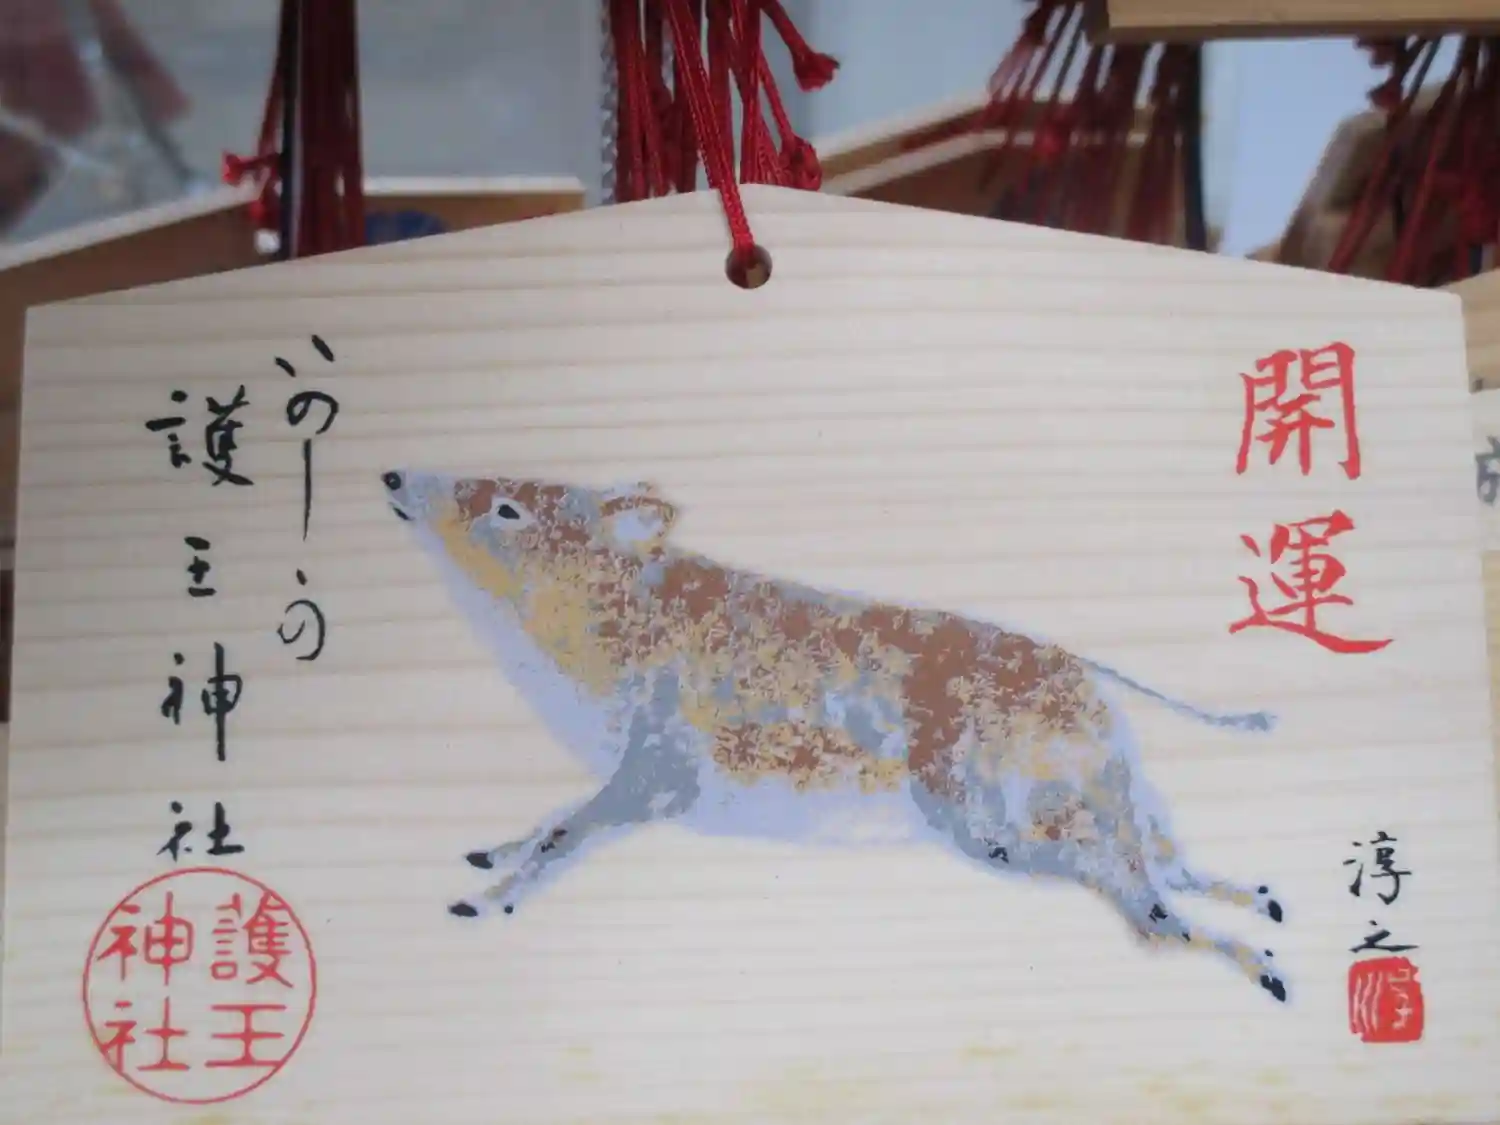 開運
淳之
淳
いのしゝの
護王神社
護王
神社